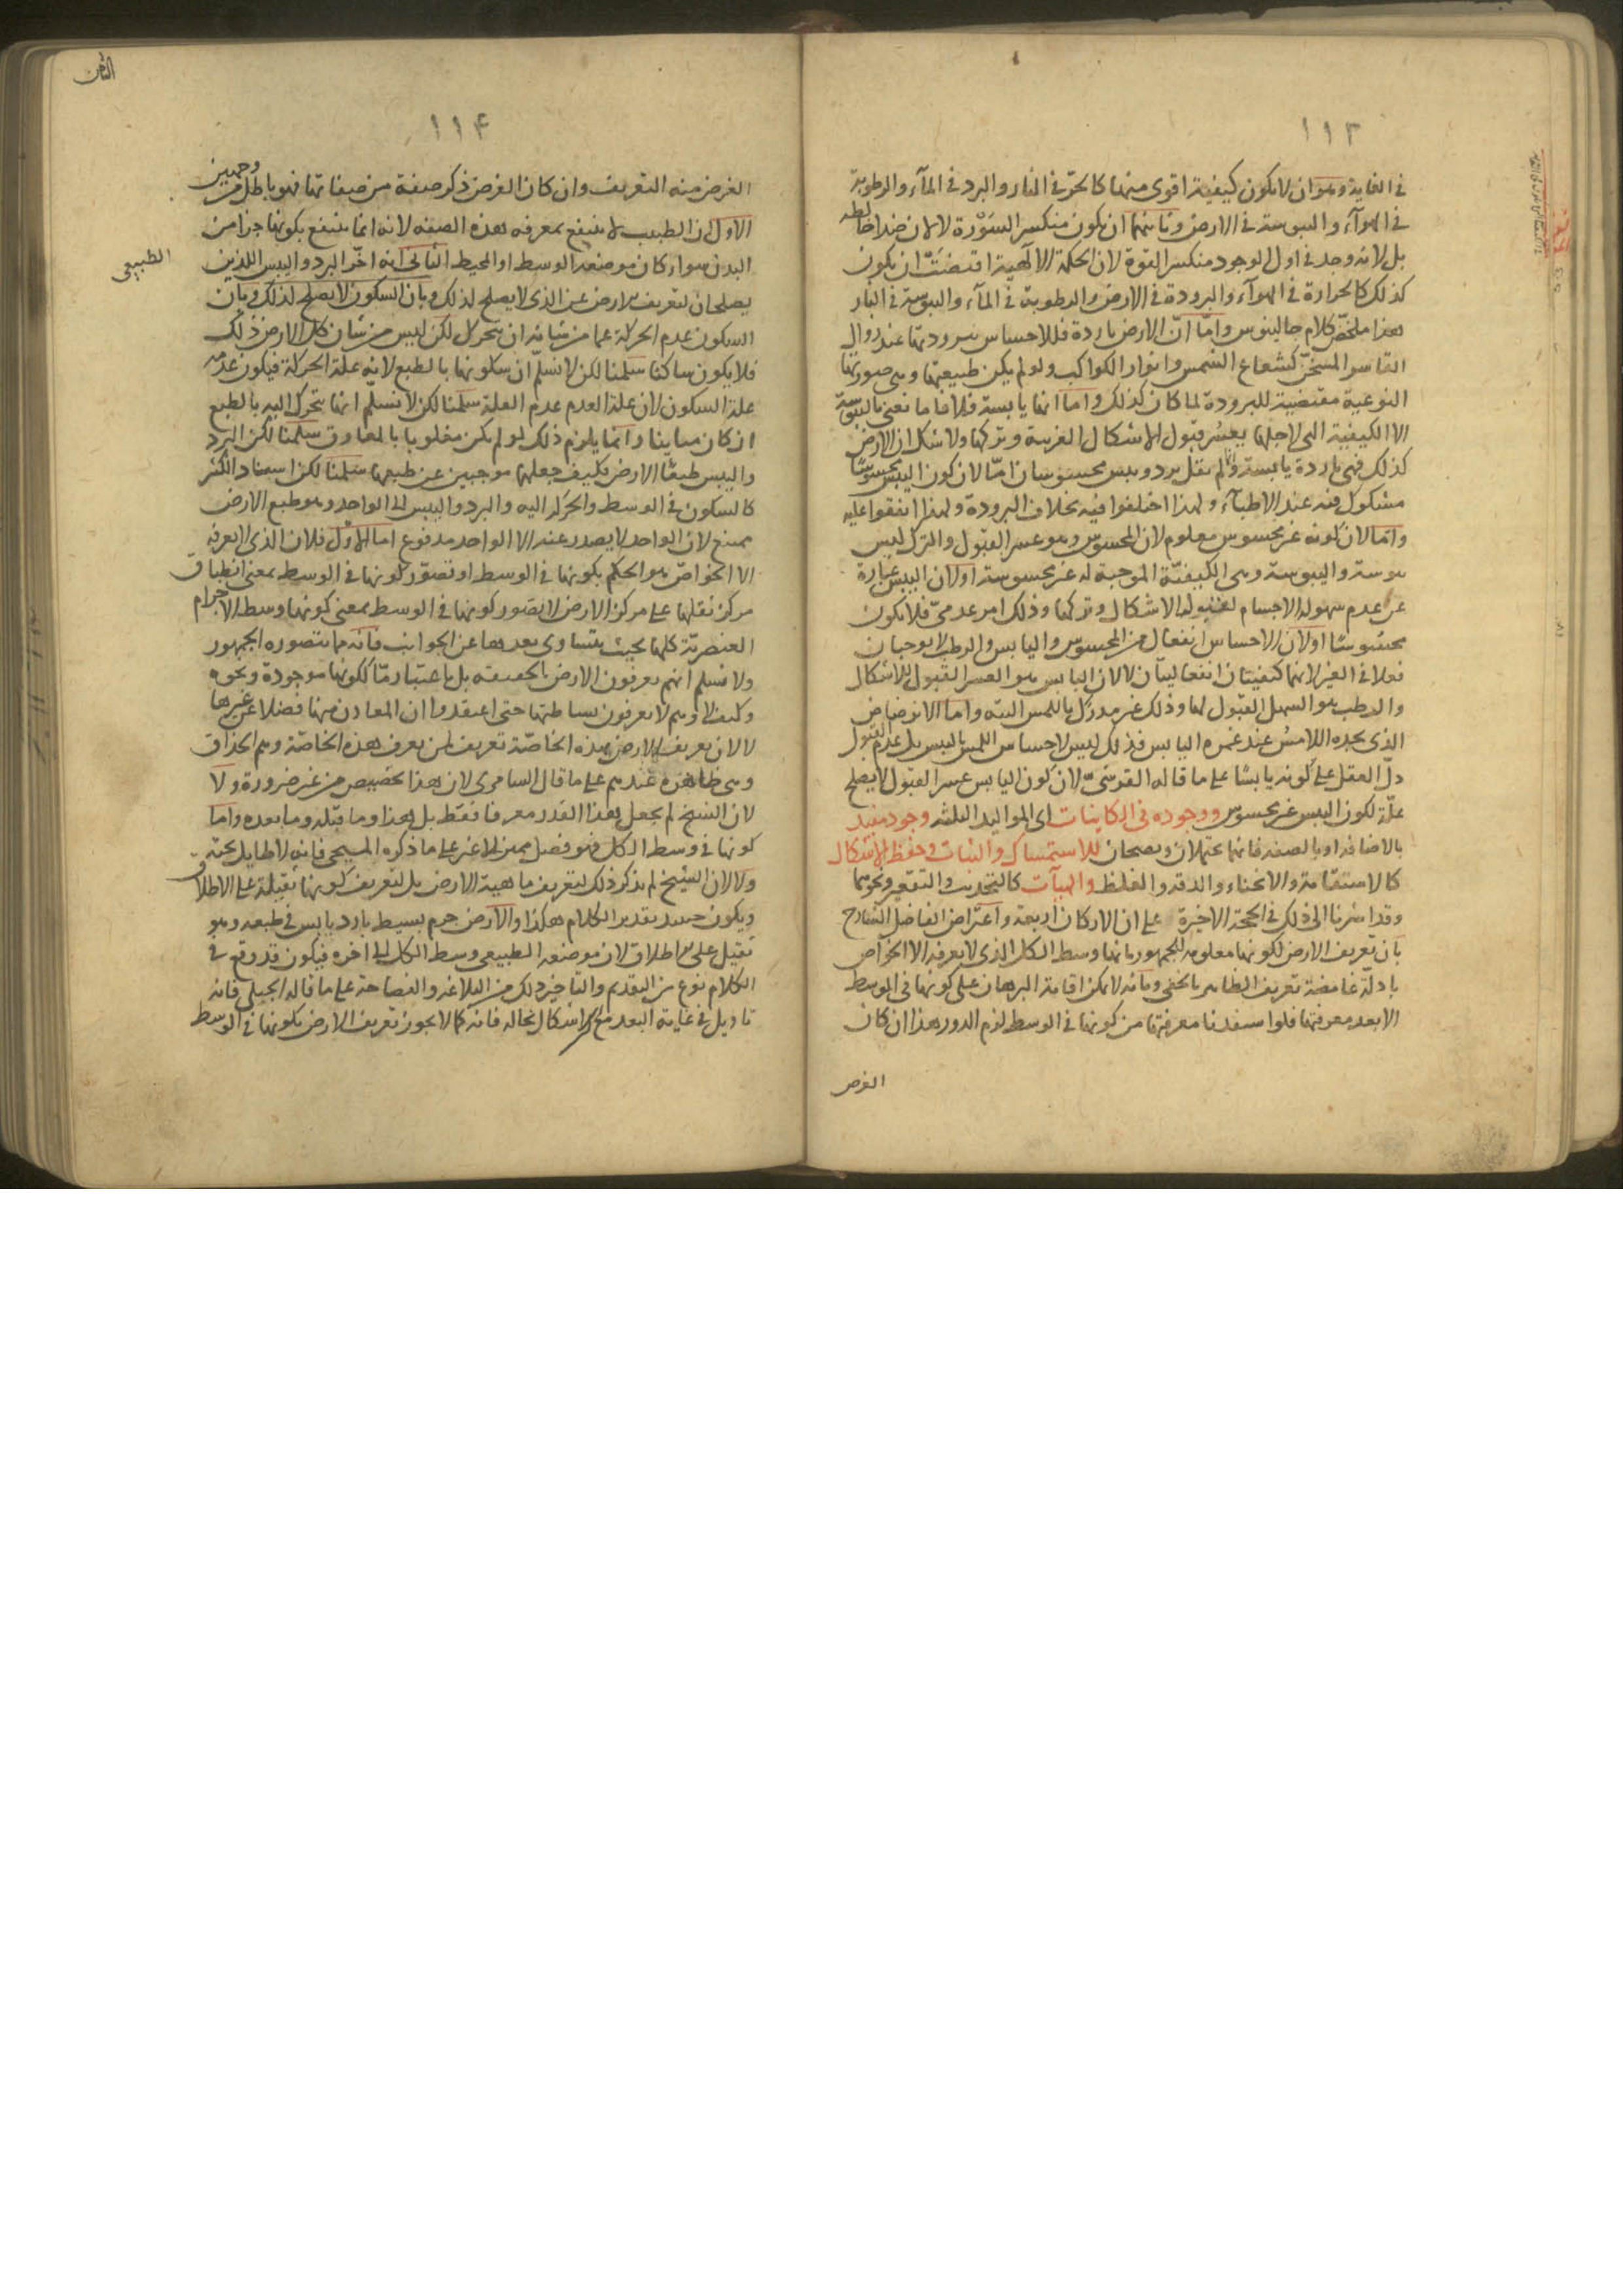 ١١٣
في الغاية وهو ان لا يكون كيفية اقوى منهما كالحر في النار والبرد في المآء والرطوبة
في الهوآء واليبوسة في الارض وثانيهما ان يكون منكسر السَوْرة لا لان ضدا خالطه
بل لانه وجد في اول الوجود منكسر القوة لان الحكمة الالهية اقتضت ان يكون
كذلك كالحرارة في الهوآء والبرودة في الارض والرطوبة في المآء واليبوسة في النار
هذا ملخص كلام جالينوس واما انّ الارض باردة فللاحساس ببرودتها عند زوال
القاسر المسخّن كشعاع الشمس وانوار الكواكب ولو لم يكن طبيعتها وهي صورتها
النوعية مقتضية للبرودة لما كان كذلك واما انها يابسة فلانا ما نعنى باليبوسة
الا الكيفية التي لاجلها يعسُر قبول الاشكال الغريبة وتركها ولا شك ان الارض
كذلك فهي باردة يابسة وانما لم يقل برد ويبس محسوسان امّا لان كون اليبس محسوسًا
مشكوك فيه عند الاطبآء ولهذا اختلفوا فيه بخلاف البرودة ولهذا اتفقوا عليه
وامّا لان كونه غير محسوس معلوم لان المحسوس وهو عسر القبول والترك ليس
يبوسة واليبوسة وهي الكيفيّة الموجبة له غير محسوسة اولان اليبس عبارة
عن عدم سهولة الاجسام لقبولها الاشكال وتركها وذلك امر عدميّ فلا يكون
محسُوسًا اولان الاحساس انفعال من المحسوس واليابس والرطب لا يوجبان
فعلا في الغير لانهما كيفيتان انفعاليتان لا لان اليابس هو العسر القبول للاشكال
والرطب هو السهل القبول لها وذلك غير مدرك باللمس البتة واما الانرضاض
الذي يجده اللامسُ عند غمزه اليابس فذلك ليس لاحساس اللمس باليبس بل عدم القبول
دلّ العقل على كونه يابسًا على ما قاله القرشيّ لان كون اليابس عسر القبول لا يصلح
علّة لكون اليبس غير محسوس ووجوده في الكاينات اي المواليد الثلثة وجود مفيد
بالاضافة او بالصفة فانهما محتملان وصحيحان للاستمساك والثبات وحفظ الاشكال
كالاستقامة والانحناء والدقة والغلظ والهيآت كالتحديب والتقعير ونحوهما
وقد اشرنا الى ذلك في الحجة الاخيرة على ان الاركان اربعة واعتراض الفاضل الشارح
بان تعريف الارض لكونها معلومة للجمهور بانها وسط الكل الذي لا يعرفه الا الخواص
بادلّة غامضة تعريف الظاهر بالخفى وبانّه لا يمكن اقامة البرهان على كونها في الوسط
الا بعد معرفتها فلو استفدنا معرفتها من كونها في الوسط لزم الدور هذا ان كان
الغرض
١١٤
الغرض منه التعريف وان كان الغرض ذكر صفة من صفاتها فهو باطل من وجهين
الاول ان الطبيب لا ينتفع بمعرفة هذه الصفة لانه انما ينتفع بكونها جزا من
البدن سواء كان موضعها الوسط او المحيط الثاني انه اخّر البرد واليبس اللذين
الطبيعي
يصلحان لتعريف الارض عن الذي لا يصلح لذلك وبان السكون لا يصلح لذلك وبان
السكون عدم الحركة عما من شانه ان يتحرك لكن ليس من شان كل الارض ذلك
فلا يكون ساكنا سلمنا لكن لا نسلّم ان سكونها بالطبع لانه علة الحركة فيكون عدمه
علة السكون لان علة العدم عدم العلة سلمنا لكن لا نسلّم انها تتحرك اليه بالطبع
ان كان مباينا وانما يلزم ذلك لو لم يكن مغلوبا بالمعاوق سلمنا لكن البرد
واليبس طبعًا الارض فكيف جعلهما موجبين عن طبعها سلمنا لكن اسناد الكثر
كالسكون في الوسط والحركة اليه والبرد واليبس الى الواحد وهو طبع الارض
ممتنع لان الواحد لا يصدر عنه الا الواحد مدفوع اما الاول فلان الذي لا يعرفه
الا الخواصّ هو الحكم بكونها في الوسط او تصوّر كونها في الوسط بمعنى انطباق
مركز ثقلها على مركز الارض لا تصور كونها في الوسط بمعنى كونها وسط الاجرام
العنصريّة كلها بحيث يتساوى بعدها عن الجوانب فانه مما يتصوره الجمهور
ولا نسلم انهم يعرفون الارض بالحقيقة بل باعتبار مّا ككونها موجودة ونحوه
وكيف لا وهم لا يعرفون بساطتها حتى اعتقدوا ان المعادن منها فضلا عن غيرها
لا لان تعريف الارض بهذه الخاصّة تعريف لمن يعرف هذه الخاصّة وهم الحذاق
وهي ظاهرة عندهم على ما قال السامري لان هذا تخصيص من غير ضرورة ولا
لان الشيخ لم يجعل هذا القدر معرفا فقط بل هذا وما قبله وما بعده واما
كونها في وسط الكل فهو فصل مميز لا غير على ما ذكره المسيحي فانه لا طايل تحته
ولا لان الشيخ لم يذكر ذلك لتعريف ماهية الارض بل لتعريف كونها ثقيلة على الاطلاق
ويكون حينئذ تقدير الكلام هكذا والارض جرم بسيط بارد يابس في طبعه وهو
ثقيل على الاطلاق لان موضعه الطبيعي وسط الكل الى اخره فيكون قد وقع في
الكلام نوع من التقديم والتاخير وذلك من البلاغة والفصاحة على ما قاله الجيلي فانه
تاويل في غاية البعد مع ان الاشكال بحاله فانه كما لا يجوز تعريف الارض بكونها في الوسط